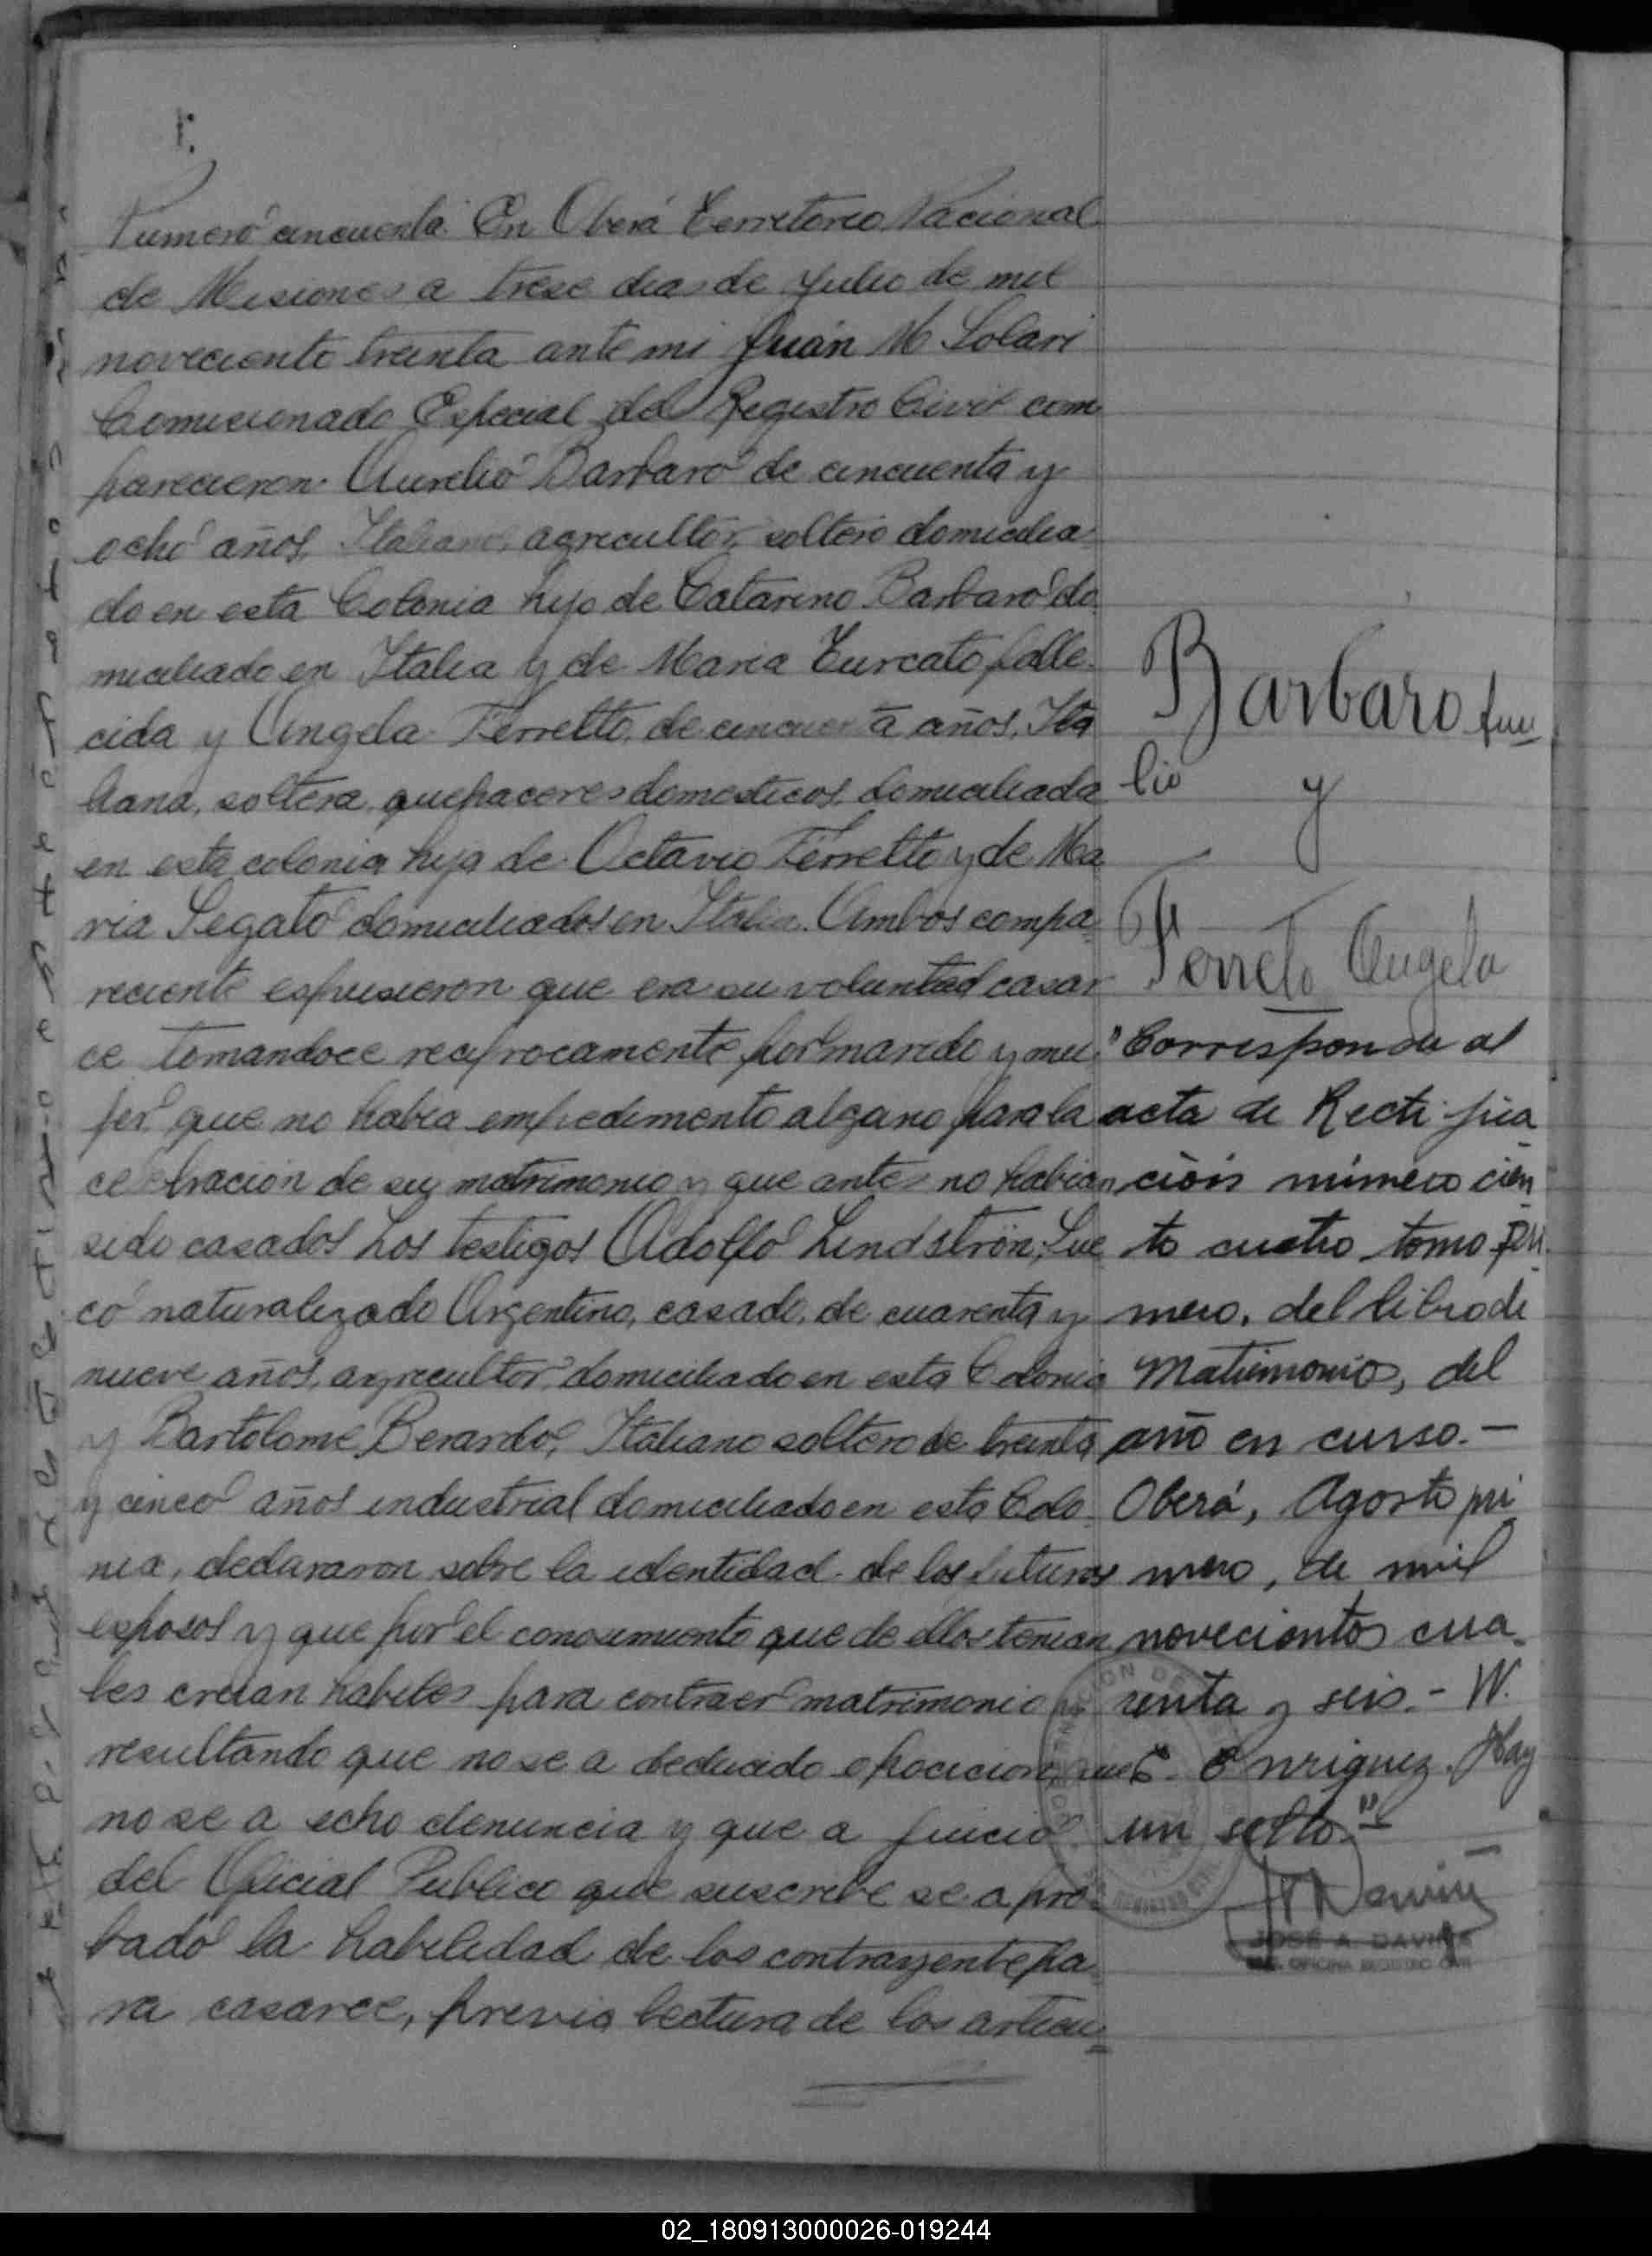 Numero cincuenta. En Oberá Territorio Nacional
de Misiones a trese dias de Julio de mil
noveciento treinta ante mi Juán M Solari
Comicionado Especial del Registro Civil com
parecieron Aurelio Barbaro de cincuenta y
ocho años, Italiano, agricultor, soltero domicilia
do en esta Colonia hijo de Catarino Barbaro do
miciliado en Italia y de Maria Turcato falle
cida y Angela Ferretto, de cincuenta años, Ita
liana, soltera, quehaceres domesticos, domiciliada
en esta colonia hija de Octavio Ferretto y de Ma
ria Segato domiciliados en Italia. Ambos compa
reciente espusieron que era su voluntad casar
ce tomandoce reciprocamente por marido y mu
jer que no habia empedimento alguno para la
celebracion de su matrimonio y que antes no habian
sido casados Los testigos Adolfo Lindströn, Sue
co naturalizado Argentino, casado, de cuarenta y
nueve años, agricultor, domiciliado en esta Colonia
y Bartolome Berardo, Italiano soltero de treinta
y cinco años industrial domiciliado en esta Colo
nia, declararon sobre la identidad de los futuros
esposos y que por el conocimiento que de ellos tenian
les creian habiles para contraer matrimonio
resultando que no se a deducido opocicion, que
no se a echo denuncia y que a juicio
del Oficial Publico que suscribe se a pro
bado la habilidad de los contrayente pa
ra casarce, previa lectura de los articu
Barbaro Aure
lio y
Ferreto Angela
"Corresponde al
acta de Rectifica
ción número cien
to cuatro tomo pri
mero, del libro de
Matrimonios, del
año en curso.-
Oberá, Agosto pri
mero, de mil
novecientos cua
renta y seis.- W.
Enriquez. Hay
un sello."
JOSÉ A. DAVIÑA
OFICINA REGISTRO CIVIL
02_180913000026-019244